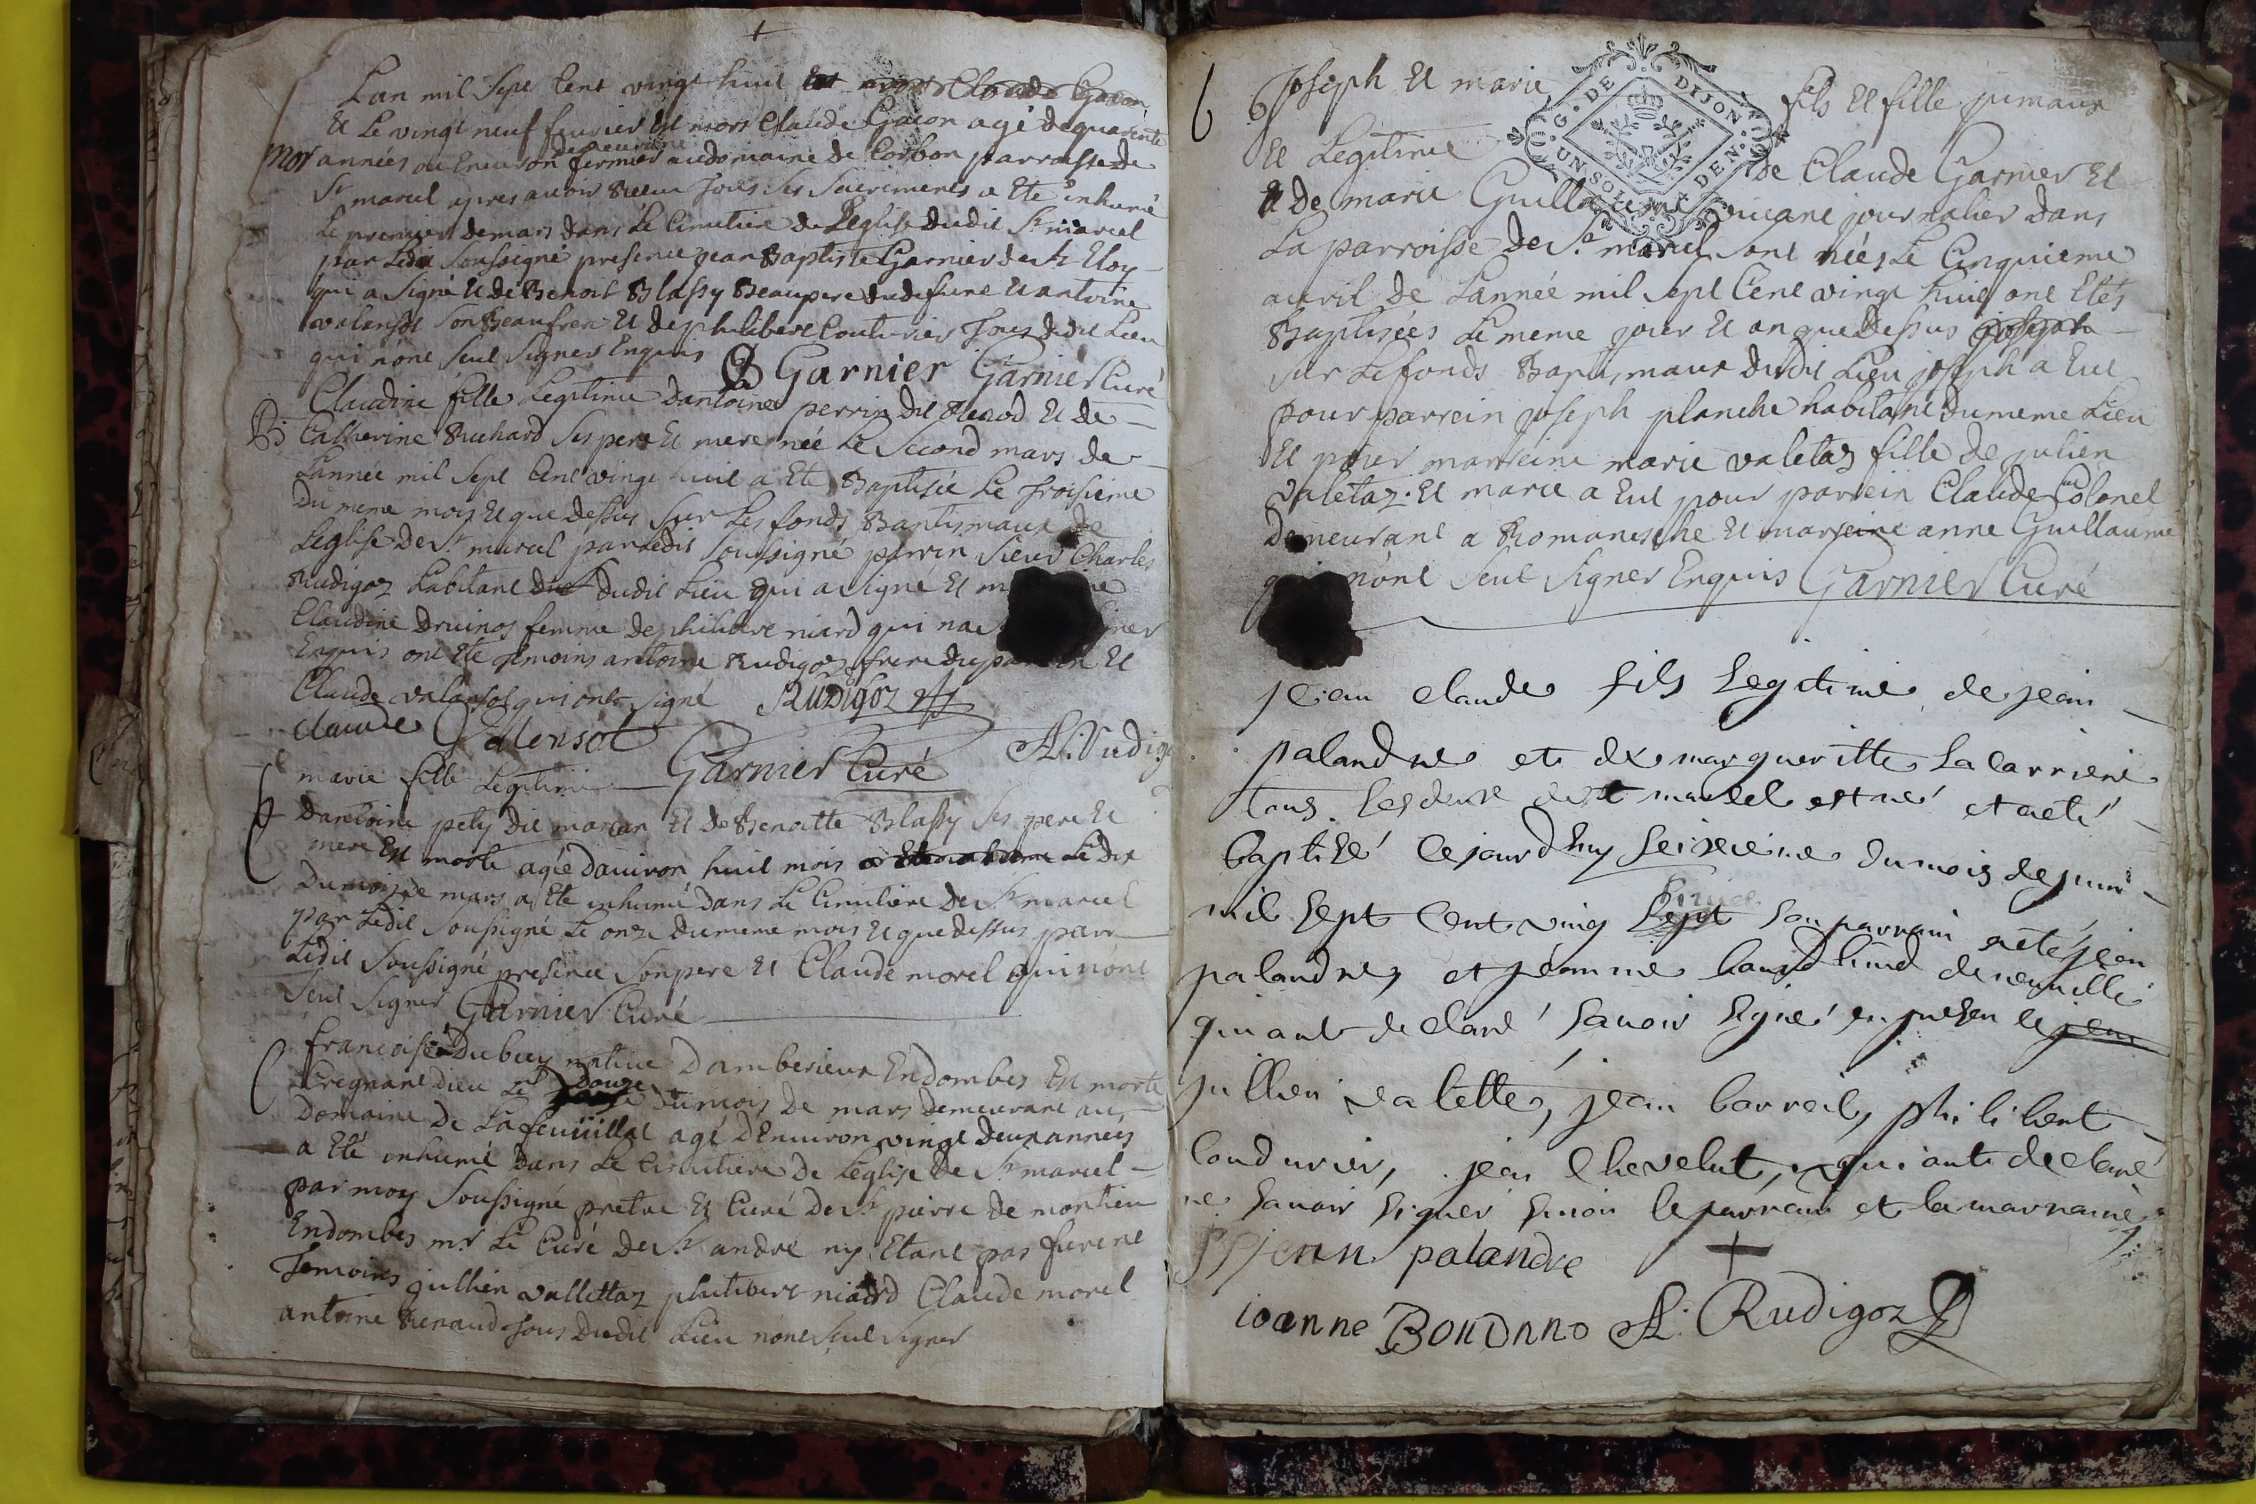 Lan mil sept cent vingt huit est mort Claude Gacon
et le vingt neuf feurier est mort Claude Gacon agé dequarente
mor années ou enuiron demeurant fermier audomaine de Corbon parroisse de
St marcel apres auoir receu tous ses sacrements a eté inhumé
le premier de mars dans le cimetiere de leglise dudit St marcel
par ledit soussigné presence jean Baptiste Garnier de St Eloy
qui a signé et de Benoit Blassy Beaupere du defunt et antoine
valansot son Beaufrere et de philibert Couturier tous dudit lieu
qui nont seut signer enquis G Garnier Garnier Curé
Claudine fille legitime dantoine perrin dit et de
B Catherine Richard ses pere et mere née le second mars de
lannée mil sept cent vingt huit a eté Baptisée le troisieme
du meme mois et que dessus sur les fonds Baptismaux de
leglise de St marcel par ledit soussigné parrin sieur Charles
Rudigoz habitant dudit lieu qui a signé et
Claudine druinos femme de philibert niard qui na
enquis ont eté temoins antoine Rudigoz frere du et
Claude valansot qui ont signé Rudigoz
claude Valensot Garnier Curé A. Rudigoz
marie fille legitime
dantoine pety dit et de Benoitte Blassy ses pere et
mere est morte agée dauiron huit mois le dix
du mois de mars a eté inhumé dans le cimetiere de St marcel
par ledit soussigné le onze du meme mois et que dessus par
ledit soussigné presence son pere et Claude morel qui nont
seut signer Garnier Curé
francoise Dubuy natiue damberieux en dombes est morte
le douze du mois de mars demeurant au
domaine de la feuüillat agé denuiron vingt deux années
a eté inhumé dans le cimetiere de leglise de St marcel
par moy soussigné pretre et Curé de St pierre de montieu
en dombes mr le Curé de St andré ny etant pas furent
temoins jullien vallettaz philibert niaird Claude morel
antoine Renaud tous dudit lieu nont seut signer
6 Joseph et marie fils et fille jumaux
G. DE DIJON
UN SOL DEN.
et legitime de Claude Garnier et
et de marie Guillaume viuant journalier dans
la parroisse de St marcel sont nées le cinquieme
auril de lannée mil sept cent vingt huit ont etés
Baptisées le meme jour et an que dessus joseph
sur les fonds Baptismaux dudit lieu joseph a eut
pour parrein joseph planche habitant du meme lieu
et pour marreine marie valetaz fille de julien
valetaz. et marie a eut pour parrein Claude Colonel
demeurant a Romanesche et marreine anne Guillaume
nont seut signer enquis Garnier Curé
jean claude fils legitime de jean
palandre et de margueritte Lacarriere
tous les deux de st marcel est né et a eté
baptisé cejourdhuy seizieme du mois de juin
mil sept cent ving sept huict son parrain a eté jean
palandre et jeanne de neuuille
qui ont declaré sauoir signé en presen ce jean
jullien valette, jean barreil, philibert
Coudurier, jean Chevelut, qui ont declaré
ne sauoir signer sinon le parrain et la marraine
jean palandre +
ioanne A. Rudigoz